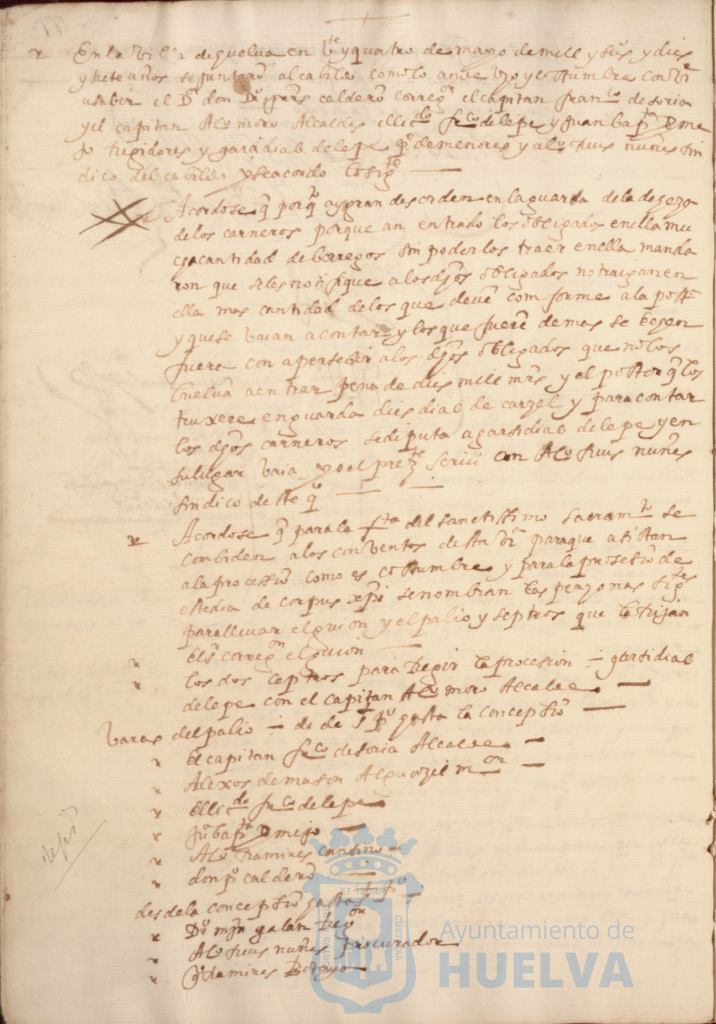 En la villa de guelva en bte y quatro de mayo de mill y sus y dies
y siete años se juntaro al cabildo como lo an de uzo y costumbre conbi
a saber el Dor don Do calderō corregor el capitan franco de soria
y el capitan Alo moro Alcaldes ellicdo frco de lepe y juan bapta Bme
jo Regidores y garsidias de lepe de menores y alo Ruis nuñes sin
dico del cabildo y se acordo lo sigte
Acordose q porq ay gran desorden en la guarda de la deheza
de los carneros porque an entrado los obligados en ella mu
cha cantidad de borregos sin poderlos traer en ella manda
ron que se les notifique a los dhos obligados no traigan en
ella mas cantidad de los que devē comforme a la postra
y que se vaian a contar y los que fuerē de mas se echen
fuera con apersebir a los dhos obligados que no los
buelva a entrar pena de dies mill mrs y el pastor q los
truxere en guarda dies dias de carzel y para contar
los dhos carneros se diputa a garsidias de lepe y en
su lugar vaia con el prezte scriuo con Alo Ruis nuñes
sindico deste
Acordose q para la fta del sanctissimo sacramto se
combiden a los conventos desta va para que asistan
a la processiō como es costumbre y para la prosesiō de
el dia de corpus xpi se nombran las perzonas sigtes
para llevar el guion y el palio y septros que la Rijan
El sr corregor el guion
los dos ceptros para Regir la procesion garsidias
de lepe con el capitan Alo moro Alcalde
varas del palio desde s po hasta la concepsiō
El capitan frco de soria Alcalde
Alexos de mason Alguazil mor
Ellicdo frco de lepe
Ju bapta Bmejo
Alo Ramires
don po calderō
desde la concepsiō hasta s po
Do mjn galan Regor
Alo Ruis nuñes procurador
Ramires
Ayuntamiento de
HUELVA